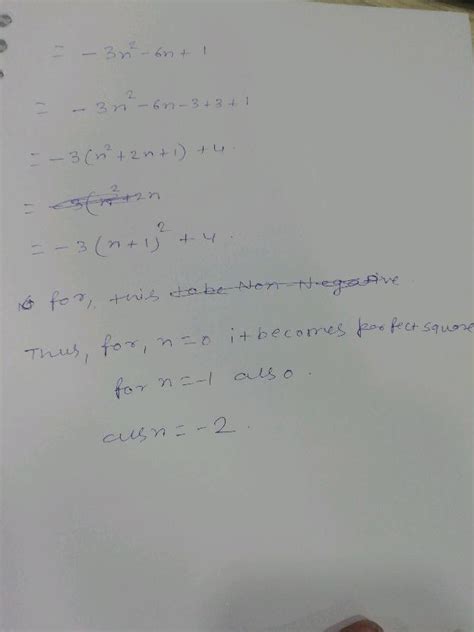 = -3n² - 6n + 1
= -3n² - 6n - 3 + 3 + 1
= -3(n² + 2n + 1) + 4.
= -3(n² + 2n
= -3(n+1)² + 4.
for, this to be Non-Negative.
Thus, for, n=0 it becomes perfect square
for n=-1 also.
also n=-2.